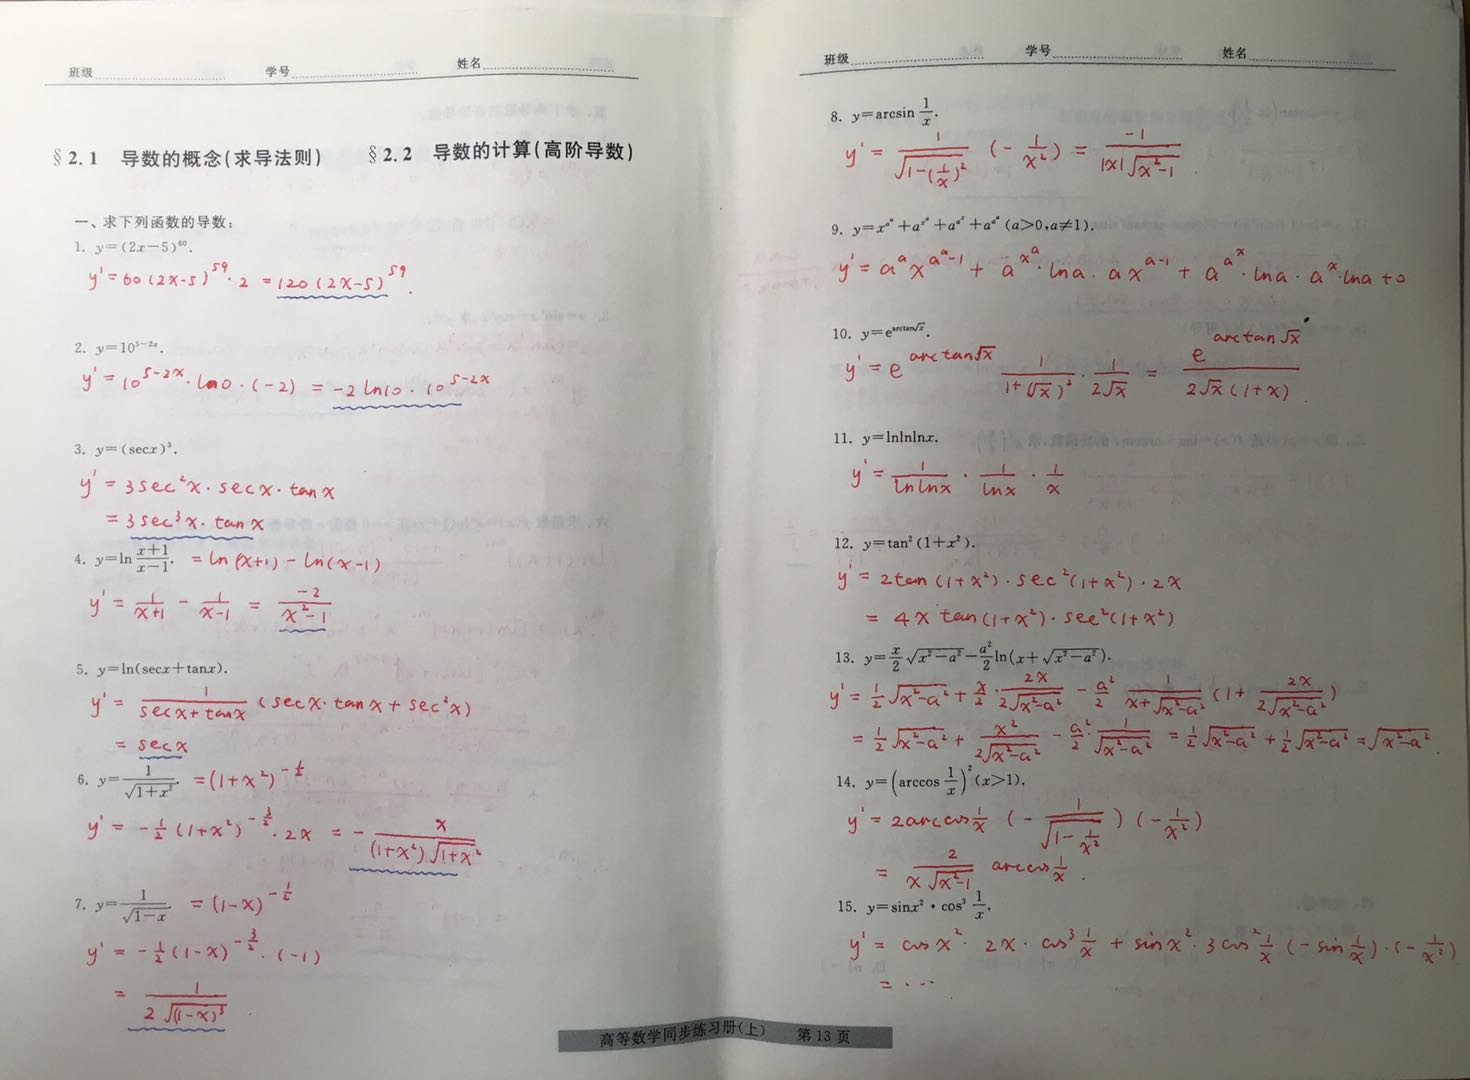 班级 学号 姓名
§2.1 导数的概念(求导法则) §2.2 导数的计算(高阶导数)
一、求下列函数的导数:
1. y=(2x-5)⁶⁰.
y'=60(2x-5)⁵⁹·2 =120(2x-5)⁵⁹.
2. y=10⁵⁻²ˣ.
y'=10⁵⁻²ˣ·ln10·(-2) =-2ln10·10⁵⁻²ˣ
3. y=(secx)³.
y'=3sec²x·secx·tanx
=3sec³x·tanx
4. y=ln (x+1)/(x-1). =ln(x+1)-ln(x-1)
y'= 1/(x+1) - 1/(x-1) = -2/(x²-1)
5. y=ln(secx+tanx).
y'= 1/(secx+tanx) (secx·tanx+sec²x)
=secx
6. y=1/√(1+x²). =(1+x²)^(-1/2)
y'=-1/2(1+x²)^(-3/2)·2x =- x/((1+x²)√(1+x²))
7. y=1/√(1-x). =(1-x)^(-1/2)
y'=-1/2(1-x)^(-3/2)·(-1)
= 1/(2√((1-x)³))
班级 学号 姓名
8. y=arcsin 1/x.
y'= 1/√(1-(1/x)²) (-1/x²) = -1/(|x|√(x²-1)).
9. y=x^(a^a)+a^(x^a)+a^(a^x)+a^(a^a) (a>0,a≠1).
y'=a^a x^(a^a-1) + a^(x^a)·lna·ax^(a-1) + a^(a^x)·lna·a^x·lna+0
10. y=e^(arctan√x).
y'=e^(arctan√x) 1/(1+(√x)²)·1/(2√x) = e^(arctan√x)/(2√x(1+x)).
11. y=lnlnlnx.
y'= 1/(lnlnx)·1/(lnx)·1/x
12. y=tan²(1+x²).
y'=2tan(1+x²)·sec²(1+x²)·2x
=4x tan(1+x²)·sec²(1+x²)
13. y=x/2 √(x²-a²)-a²/2 ln(x+√(x²-a²)).
y'=1/2 √(x²-a²)+x/2·2x/(2√(x²-a²)) -a²/2 1/(x+√(x²-a²)) (1+2x/(2√(x²-a²)))
=1/2 √(x²-a²)+x²/(2√(x²-a²)) -a²/2·1/√(x²-a²) =1/2 √(x²-a²)+1/2 √(x²-a²)=√(x²-a²).
14. y=(arccos 1/x)²(x>1).
y'=2arccos1/x (-1/√(1-1/x²))(-1/x²)
= 2/(x√(x²-1)) arccos1/x.
15. y=sinx²·cos³ 1/x.
y'=cosx²·2x·cos³1/x+sinx²·3cos²1/x(-sin1/x)·(-1/x²)
=···
高等数学同步练习册(上) 第13页